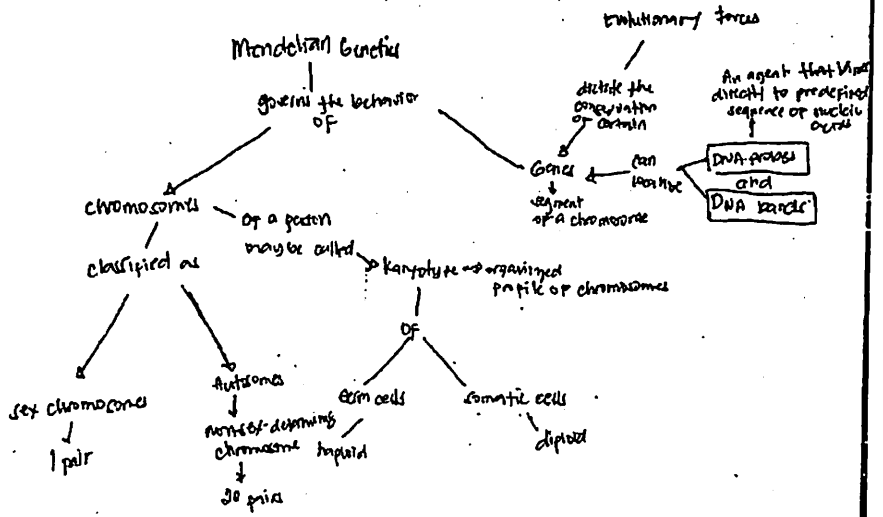 Evolutionary forces
Mendelian Genetics
governs the behavior
of
dictate the
conservation
of
certain
An agent that binds
directly to predefined
sequence of nucleic
acids
Genes
can
localize
DNA probes
and
DNA bands
segment
of a chromosome
chromosomes
of a person
may be called
classified as
Karyotype
organized
profile of chromosomes
of
sex chromosomes
1 pair
Autosomes
non sex-determining
chromosome
20 pairs
Germ cells
haploid
somatic cells
diploid